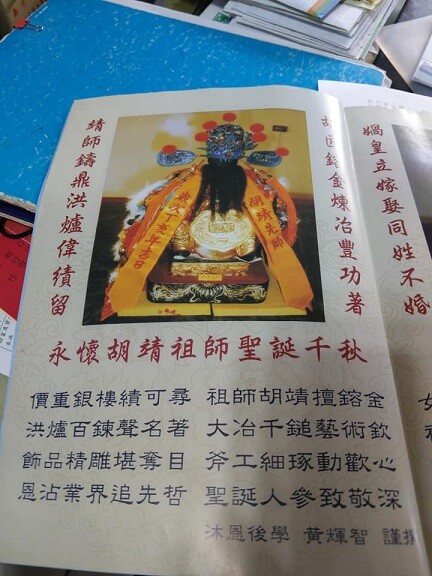 媧皇立嫁娶同姓不婚
胡匠鎔金煉冶豐功著
胡靖先師
年吉日
靖師鑄鼎洪爐偉績留
永懷胡靖祖師聖誕千秋
價重銀樓績可尋 祖師胡靖擅鎔金
洪爐百鍊聲名著 大冶千鎚藝術欽
飾品精雕堪奪目 斧工細琢動歡心
恩沾業界追先哲 聖誕人參致敬深
沐恩後學 黃輝智 謹撰